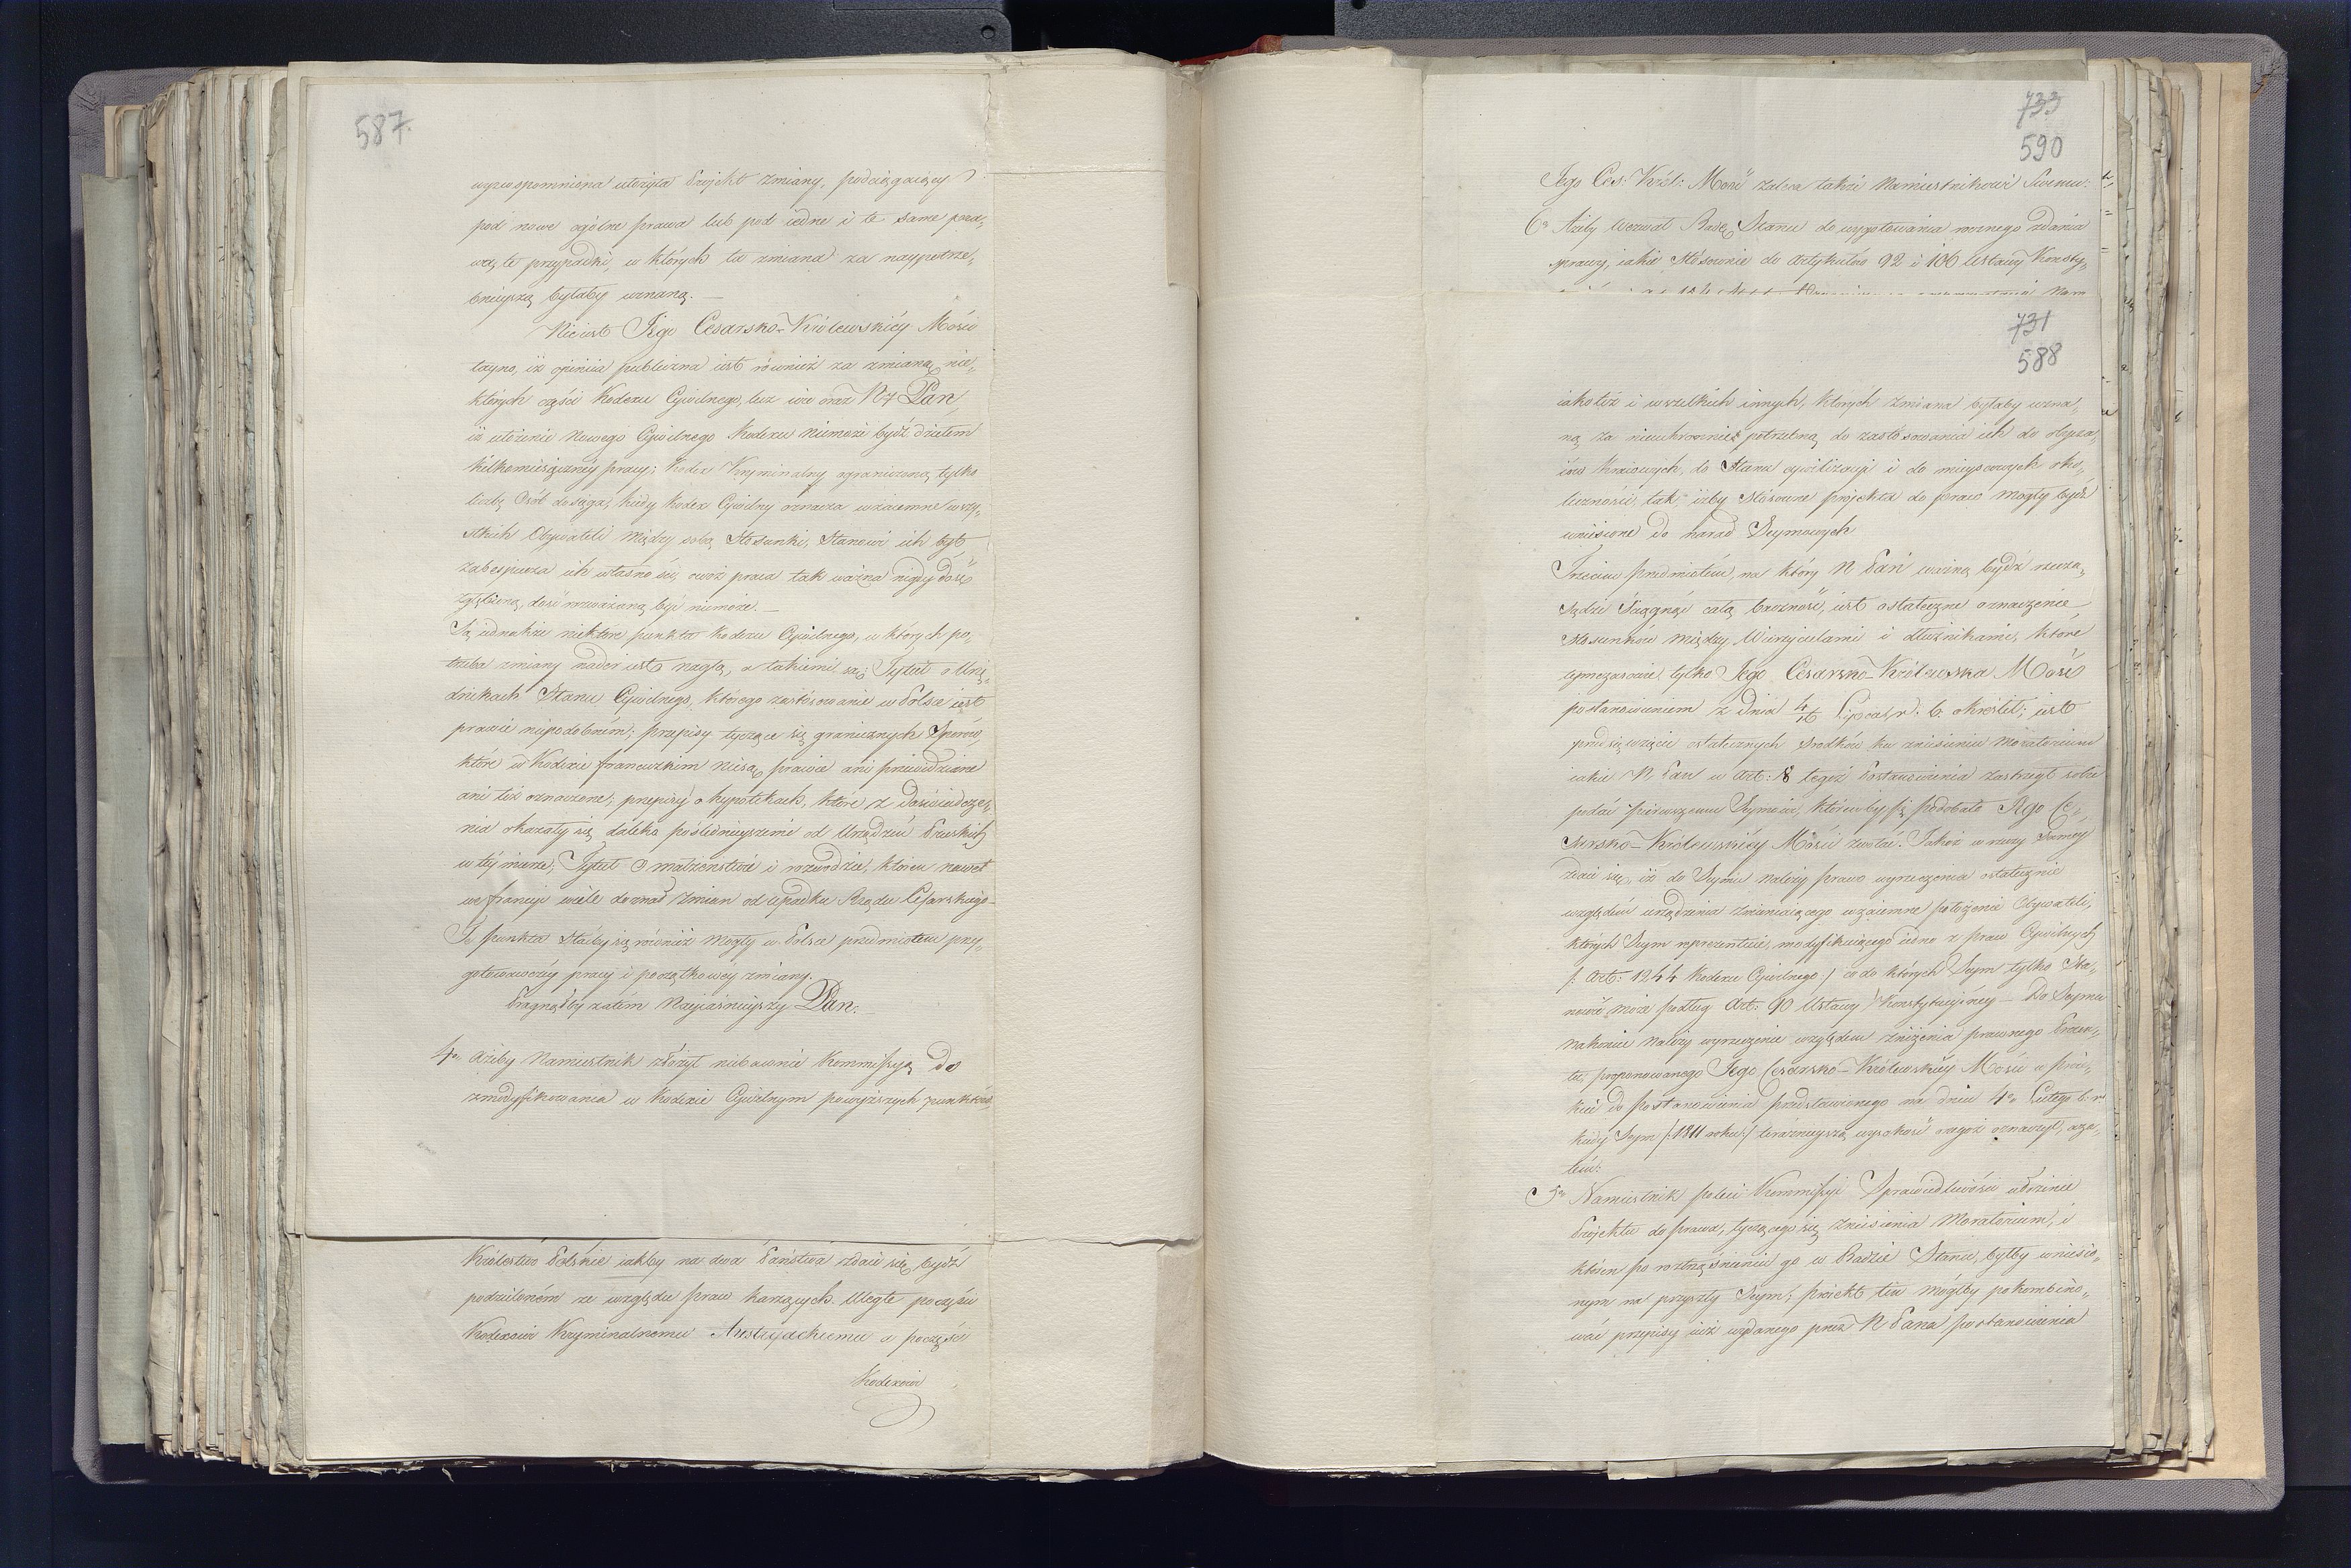 587.
wyżwspomniona ułożyła Projekt zmiany, podciągaiący
pod nowe ogólne prawa lub pod iedne i te same pra-
wa, te przypadki, w których ta zmiana za naypotrze-
bnieyszą byłaby uznaną. —
Nie iest Jego Cesarsko-Królewskiéy Mości
tayno, iż opiniia publiczna iest również za zmianą nie-
których części Kodexu Cywilnego, lecz wie oraz NPan,
iż ułożenie Nowego Cywilnego Kodexu niemoże bydź dziełem
kilkomiesięcznéy pracy; Kodex Kryminalny ograniczoną tylko
liczbę Osób dosięga, kiedy Kodex Cywilny oznacza wzaiemne wszy-
stkich Obywateli między sobą Stosunki, Stanowi ich byt
zabespiecza ich własność, owóż praca tak ważna nigdy dość
zgłębioną, dość rozważaną być niemoże. —
Są iednakże niektóre punkta Kodexu Cywilnego, w których po-
trzeba zmiany nader iest nagłą, a takiemi są: Tytuł o Urzę-
dnikach Stanu Cywilnego, którego zastósowanie w Polsce iest
prawie niepodobném; przepisy tyczące się granicznych Sporów,
które w Kodexie francuzkim niesą prawie ani przewidziane
ani też oznaczone; przepisy o hypotekach, które z doświadcze-
nia okazały się daleko pośledniejszemi od Urządzeń Pruskich
w téy mierze; Tytuł O małżeństwie i rozwodzie, który nawet
we francyi wiele doznał zmian od upadku Rządu Cesarskiego
Te punkta Stać by się również mogły w Polsce przedmiotem przy-
gotowawczéy pracy i początkowéy zmiany.
Pragnąłby zatém Nayiaśnieyszy Pan:
4o ażeby Namiestnik złożył niebawnie Kommissyą do
zmodyfikowania w Kodexie Cywilnym powyższych punktów,
Królestwo Polskie iakby na dwa Państwa zdaie się bydź
podzieloném ze względu praw karzących. Uległe po części
Kodexowi Kryminalnemu Austryackiemu a po części
Kodexowi
733
590
Jego Ces: Król: Mość zaleca także Namiestnikowi Swemu:
6o Ażeby wezwał Radę Stanu do wygotowania rocznego zdania
sprawy, iakie Stósownie do Artykułów 92 i 106 Ustawy Konsty-
731
588
iako też i wszelkich innych, których zmiana byłaby uzna-
ną za nieuchronnie potrzebną do zastósowania ich do obycza-
iów kraiowych, do Stanu cywilizacyi i do mieyscowych oko-
liczności, tak, iżby Stósowne projekta do praw mogły bydź
wniesione do narad Seymowych
Trzecim przedmiotem, na który N Pan ważną bydź rzeczą
sądzi ściągnąć całą baczność, iest ostateczne oznaczenie
stosunków między Wierzycielami i dłużnikami, które
tymczasowie tylko Jego Cesarsko-Królewska Mość
postanowieniem z dnia 4/16 Lipca r. b. określił; iest
przedsięwzięcie ostatecznych środków ku zniesieniu Moratorium
iakie N Pan w Art: 8 tegoż Postanowienia zastrzegł sobie
podać pierwszemu Seymowi, któryby się podobało Jego Ce-
sarsko-Królewskiéy Mości zwołać. Jakoż w rzeczy saméy
zdaie się, iż do Seymu należy prawo wyrzeczenia ostatecznie
względem urządzenia zmieniaiącego wzaiemne położenie Obywateli,
których Seym reprezentuie, modyfikuiącego iedno z praw Cywilnych
/: Art: 1244 Kodexu Cywilnego :/ co do których Seym tylko Sta-
nowić może podług Art: 90 Ustawy Konstytucyinéy — Do Seymu
nakoniec należy wyrzeczenie względem zniżenia prawnego Procen-
tu, proponowanego Jego Cesarsko-Królewskiéy Mości w proie-
kcie do postanowienia przedstawionego na dniu 4o Lutego b. r
kiedy Seym /: 1811 roku :/ teraźnieyszą wysokość onegoż oznaczył, aza-
tém:
5o Namiestnik poleci Kommissyi Sprawiedliwości ułożenie
Projektu do prawa, tyczącego się zniesienia Moratorium, i
któren po roztrząśnieniu go w Radzie Stanu, byłby wniesio-
nym na przyszły Seym; proiekt ten mógłby pokombino-
wać przepisy iuż wydanego przez N Pana postanowienia